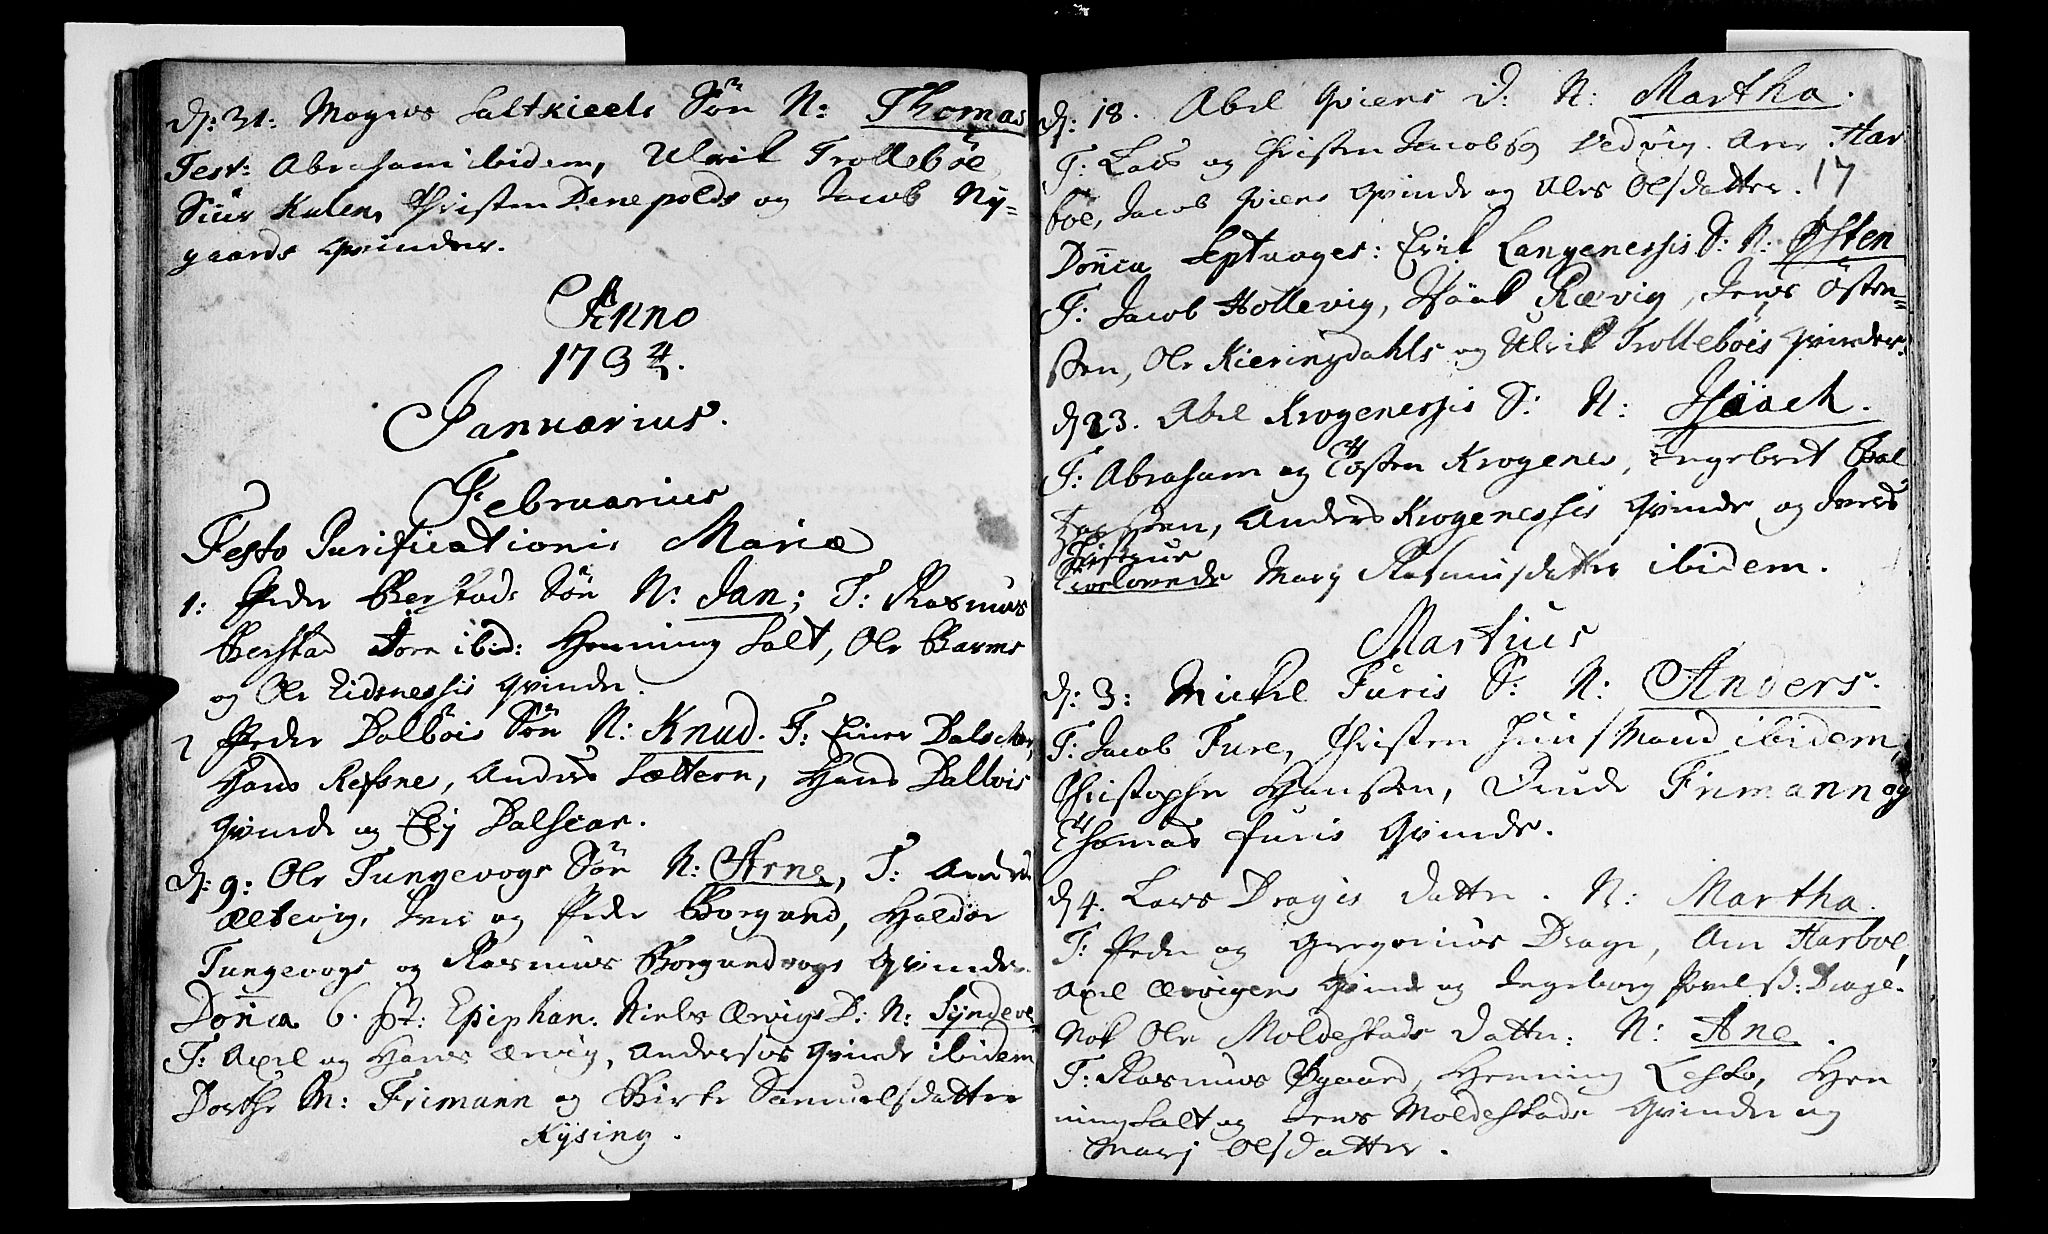 d: 31: Magnus Saltkieels Sön N: Thomas
Test: Abraham ibidem, Ulrik Trollebøe,
Siur Kulen, Christen Denepolds og Jacob Ny=
gaards Qvinder.
Anno
1734.
Januarius.
Februarius
Festo Purificationis Mariæ
1: Peder Berstads Sön N: Jan; T: Rasmus
Berstad Jørn ibid: Henning Salt, Ole Barmes
og Ole Eidsnessis Qvinde.
2 Peder Dalbøis Sön N: Knud. T: Einer Dalschar,
Hans Refsne, Anders Sættern, Hans Dalbois
Qvinde og Elj Dalscar.
d: 9: Ole Tungevogs Sön N: Arne, T: Anders
Ælsevig, Iver og Peder Borgund, Haldor
Tungevogs og Rasmus Borgundvogs Qvinder.
Donica 6. pt: Epiphan. Niels Ærvigs D: N: Syndeve
T: Axel og Hans Ærvig, Andersis Qvinde ibidem
Dorthe M: Frimann og Birte Samuelsdatter
Kysing.
d: 18. Abel Qviens D: N: Martha.
T: Lars og Christen Jacobss Vedvig. Ane Har
boe, Jacob Qviens Qvinde og Ales Olsdatter. 17
Donica Septuages: Erik Langenessis S: N: Østen
T: Jacob Hollevig, Isaak Rævig, Jens Østen=
ssen, Ole Kieringdahls og Ulrik Trollebois Qvinder.
d 23. Abel Krogenessis S: N: Isaach.
T: Abraham og Tosten Krogenes, Ingebret Bal
zerssen, Anders Krogenessis Qvinde og Ivers
Cristens
Trolovede Mary Rasmusdatter ibidem.
Martius
d: 3: Mickel Furis S: N: Anders.
T: Jacob Fure, Christen Huusmand ibidem,
Christopher Hanssen, Frimann og
Thomas Furis Qvinde.
d 4. Lars Dragis Datter. N: Martha.
T: Peder og Gregorius Drage, Ane Harboe,
Axel Ærvigens Qvinde og Ingeborg Povels D: Drage.
Nok Ole Moldestads Datter: N: Ane.
T: Rasmus Øygaard, Henning Leste, Hen
ning Salt og Jens Moldestads Qvinder og
Marj Olsdatter.